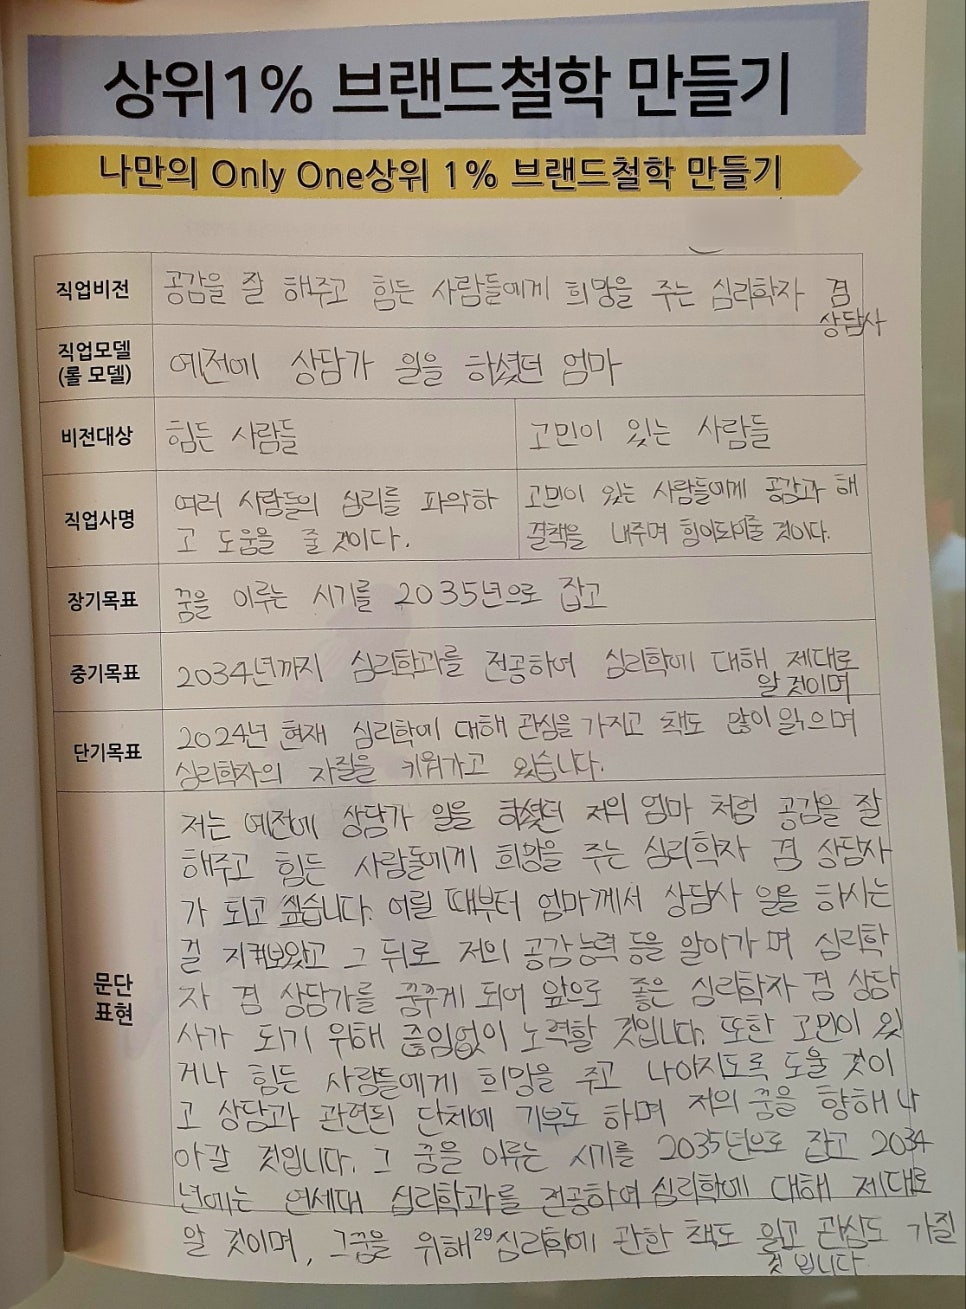 상위1% 브랜드철학 만들기
나만의 Only One상위 1% 브랜드철학 만들기
직업비전
공감을 잘 해주고 힘든 사람들에게 희망을 주는 심리학자 겸
상담사
직업모델
(롤 모델)
예전에 상담가 일을 하셨던 엄마
비전대상
힘든 사람들
고민이 있는 사람들
직업사명
여러 사람들의 심리를 파악하
고 도움을 줄 것이다.
고민이 있는 사람들에게 공감과 해
결책을 내주며 힘이되어줄 것이다.
장기목표
꿈을 이루는 시기를 2035년으로 잡고
중기목표
2034년까지 심리학과를 전공하여 심리학에 대해 제대로
알 것이며
단기목표
2024년 현재 심리학에 대해 관심을 가지고 책도 많이 읽으며
심리학자의 자질을 키워가고 있습니다.
문단
표현
저는 예전에 상담가 일을 하셨던 저의 엄마 처럼 공감을 잘
해주고 힘든 사람들에게 희망을 주는 심리학자 겸 상담사
가 되고 싶습니다. 어릴 때부터 엄마께서 상담사 일을 하시는
걸 지켜보았고 그 뒤로 저의 공감능력 등을 알아가 며 심리학
자 겸 상담가를 꿈꾸게 되어 앞으로 좋은 심리학자 겸 상담
사가 되기 위해 끊임없이 노력할 것입니다. 또한 고민이 있
거나 힘든 사람들에게 희망을 주고 나아지도록 도울 것이
고 상담과 관련된 단체에 기부도 하며 저의 꿈을 향해 나
아갈 것입니다. 그 꿈을 이루는 시기를 2035년으로 잡고 2034
년에는 연세대 심리학과를 전공하여 심리학에 대해 제대로
알 것이며, 그꿈을 위해 심리학에 관한 책도 읽고 관심도 가질
것 입니다
29